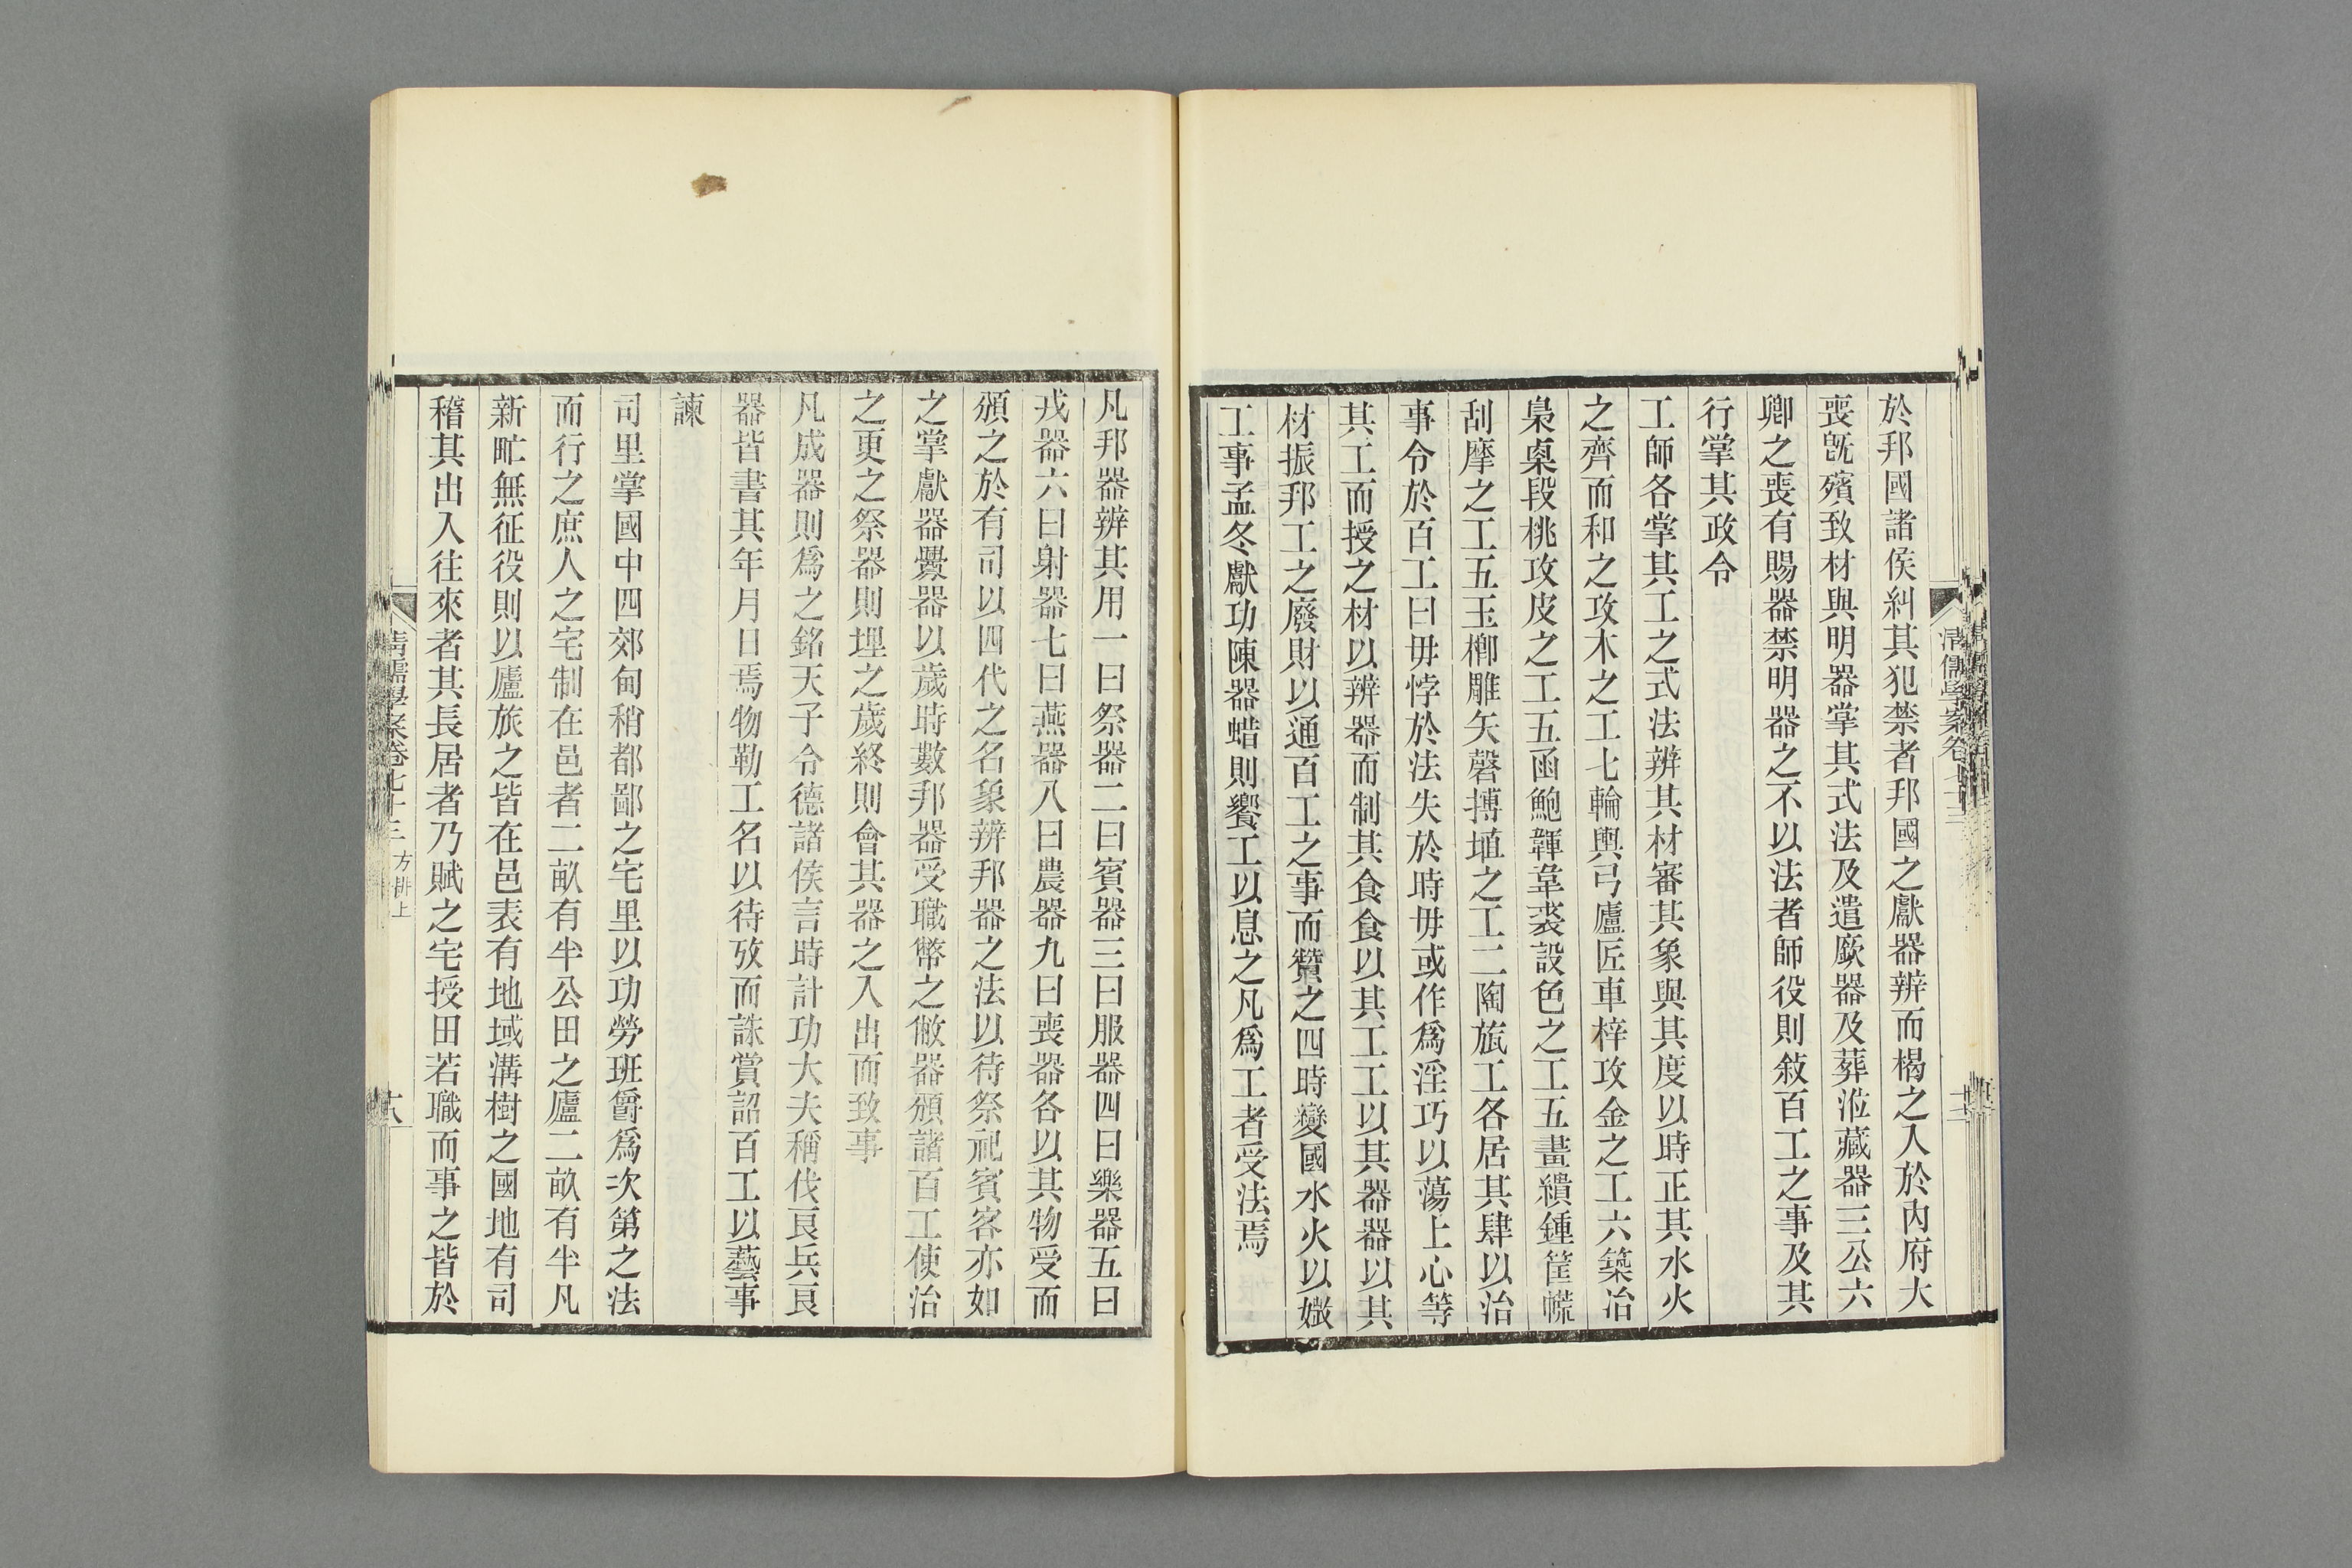 於邦國諸侯糾其犯禁者邦國之獻器辨而楬之入於內府大
喪旣殯致材與明器掌其式法及遣廞器及葬涖藏器三公六
卿之喪有賜器禁明器之不以法者師役則敘百工之事及其
行掌其政令
工師各掌其工之式法辨其材審其象與其度以時正其水火
之齊而和之攻木之工七輪輿弓廬匠車梓攻金之工六築冶
梟㮚段桃攻皮之工五函鮑韗韋裘設色之工五畫繢鍾筐㡃
刮摩之工五玉楖雕矢磬摶埴之工二陶旊工各居其肆以治
事令於百工曰毋悖於法失於時毋或作爲淫巧以蕩上心等
其工而授之材以辨器而制其食食以其工工以其器器以其
材振邦工之廢財以通百工之事而贊之四時變國水火以㜫
工事孟冬獻功陳器蜡則饗工以息之凡爲工者受法焉
凡邦器辨其用一曰祭器二曰賓器三曰服器四曰樂器五曰
戎器六曰射器七曰燕器八曰農器九曰喪器各以其物受而
頒之於有司以四代之名象辨邦器之法以待祭祀賓客亦如
之掌獻器釁器以歲時數邦器受職幣之敝器頒諸百工使治
之更之祭器則埋之歲終則會其器之入出而致事
凡成器則爲之銘天子令德諸侯言時計功大夫稱伐良兵良
器皆書其年月日焉物勒工名以待攷而誅賞詔百工以藝事
諫
司里掌國中四郊甸稍都鄙之宅里以功勞班爵爲次第之法
而行之庶人之宅制在邑者二畝有半公田之廬二畝有半凡
新甿無征役則以廬旅之皆在邑表有地域溝樹之國地有司
稽其出入往來者其長居者乃賦之宅授田若職而事之皆於
清儒學案卷七十三 方耕上